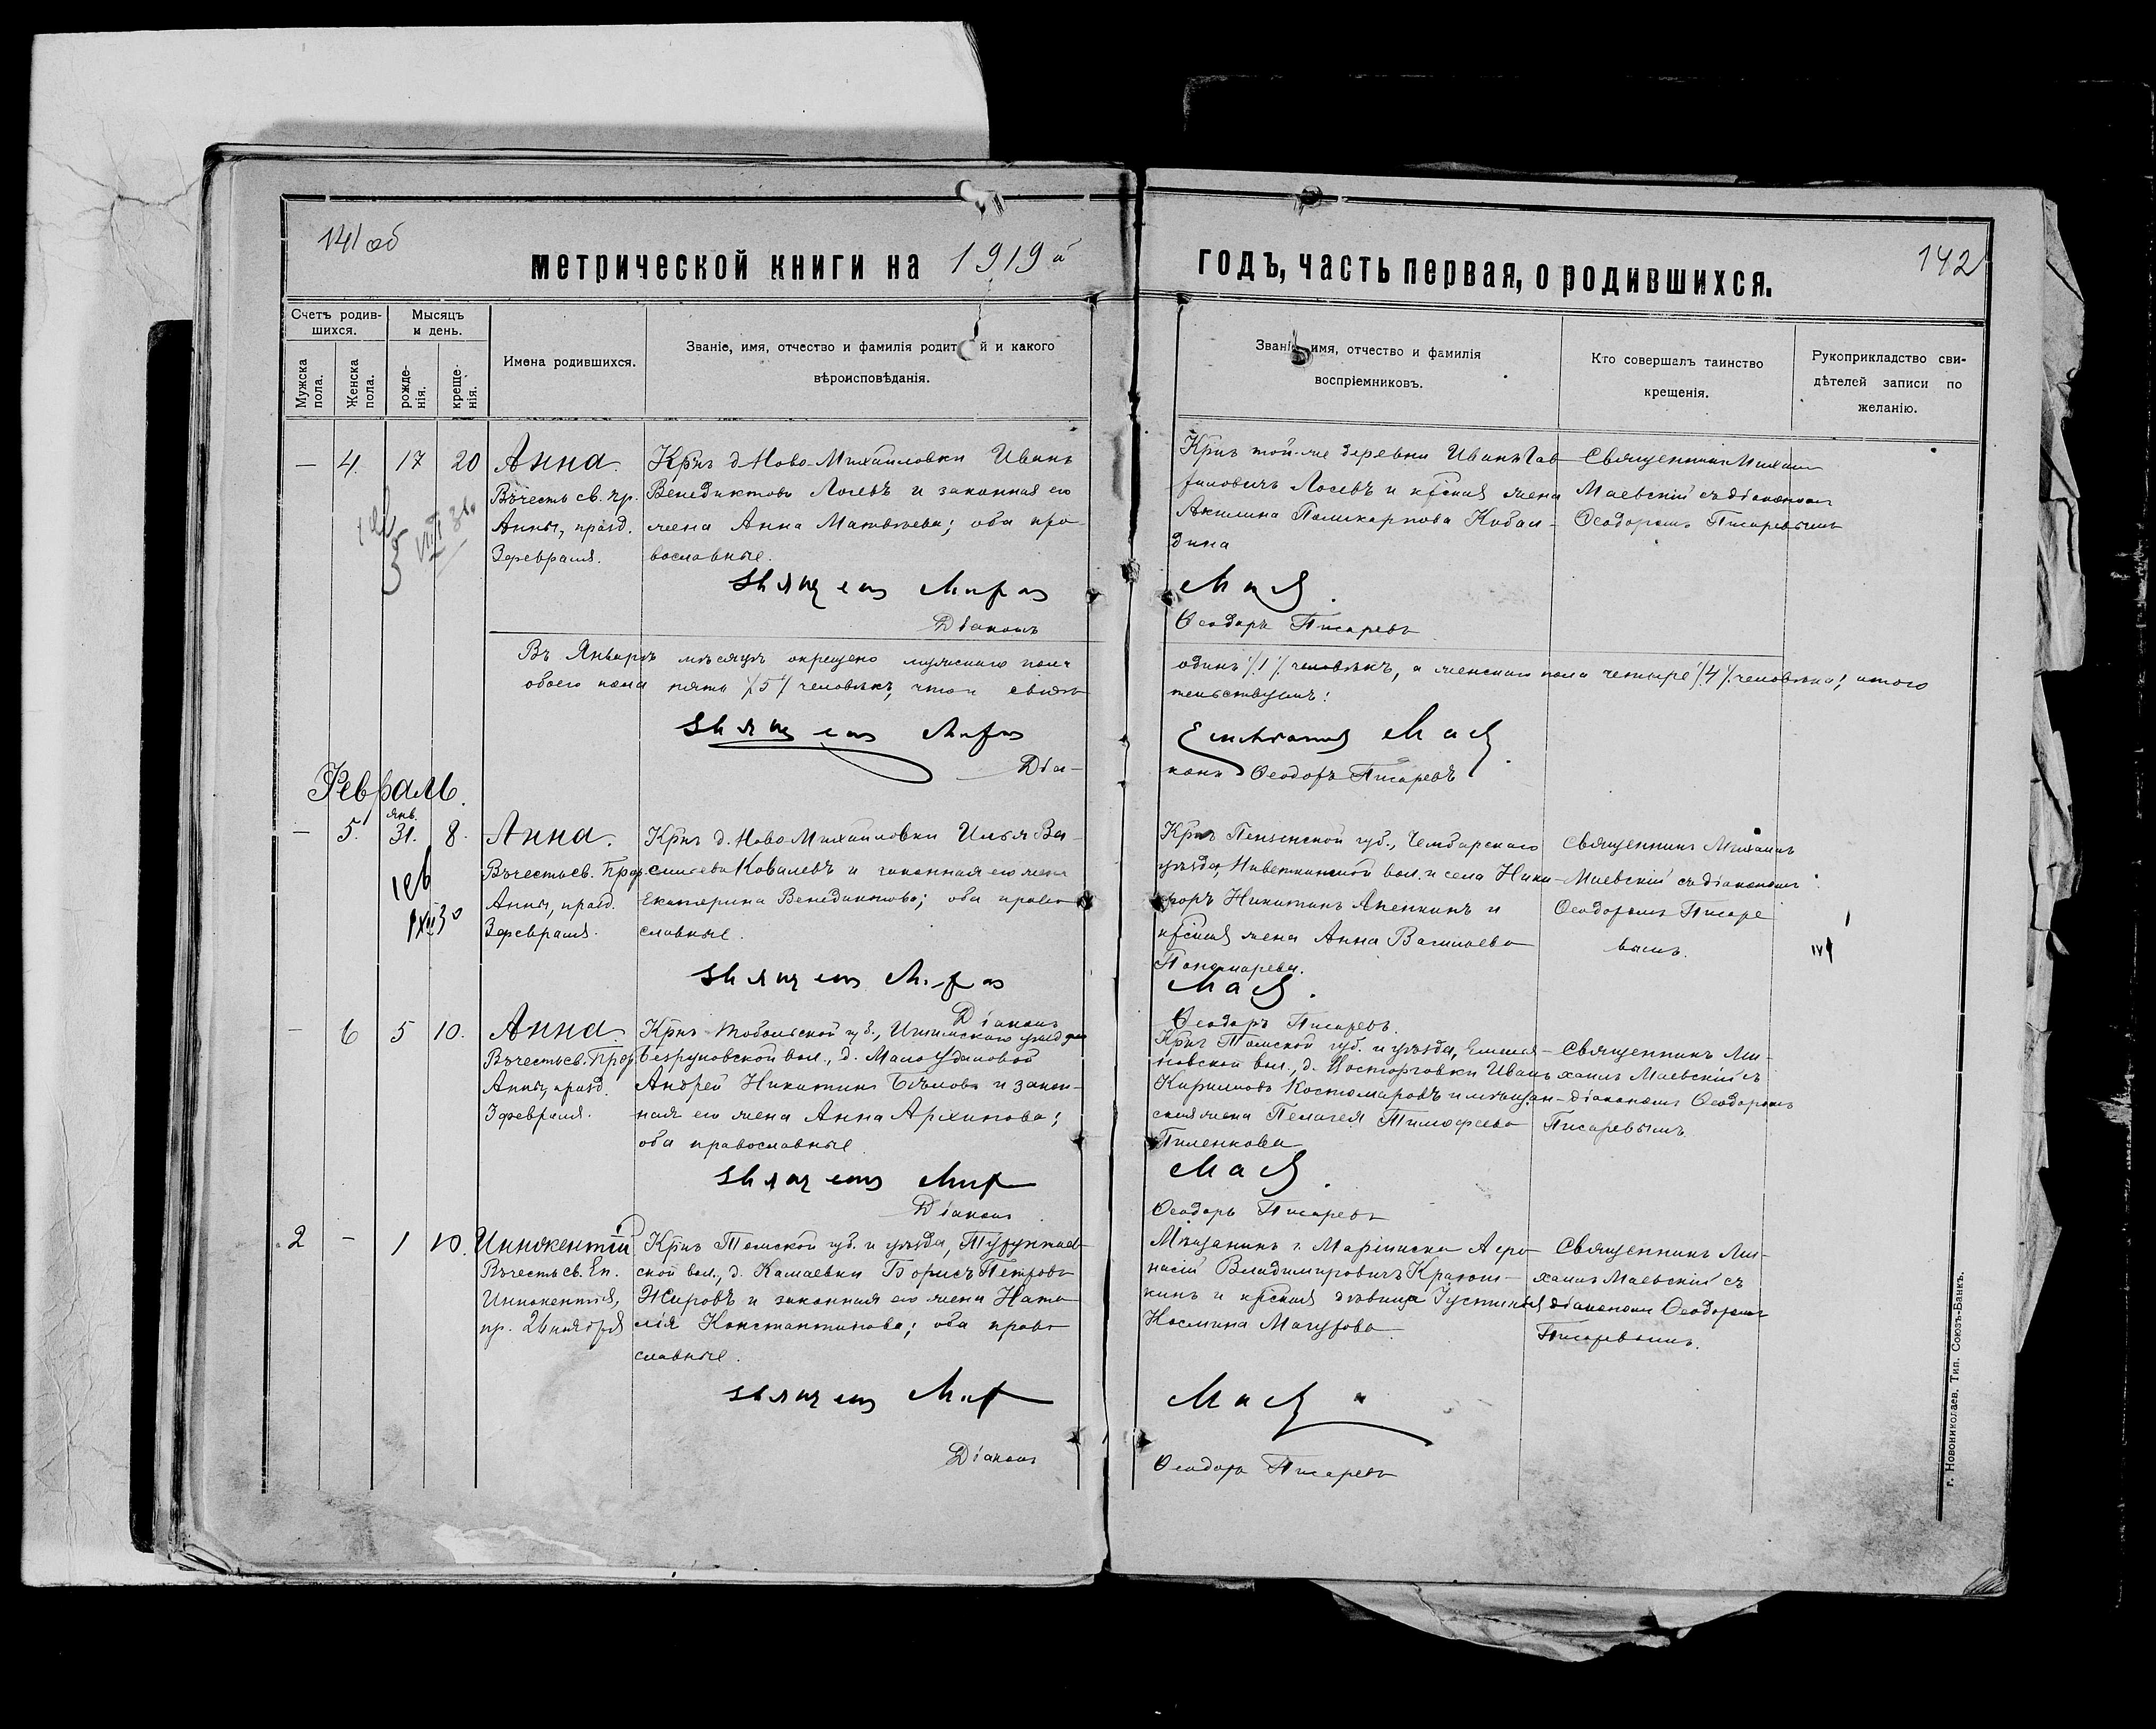 141 об
метрической книги на 1919 й
годъ, часть первая, о родившихся.
142
Счетъ родив-
шихся.
Мужска
пола.
Женска
пола.
Мѣсяцъ
и день.
рожде-
нія.
креще-
нія.
Имена родившихся.
Званіе, имя, отчество и фамилія родит й и какого
вѣроисповѣданія.
Званіе, имя, отчество и фамилія
воспріемниковъ.
Кто совершалъ таинство
крещенія.
Рукоприкладство сви-
дѣтелей записи по
желанію.
— 4. 17 20
Анна.
Въ честь св. пр.
Анны, празд.
3 февраля.
Крнъ д. Ново-Михайловки Иванъ
Венедиктовъ Лосевъ и законная его
жена Анна Матвѣева; оба пра-
вославные.
Крнъ той-же деревни Иванъ Гав
риловичъ Лосевъ и крская жена
Акилина Поликарпова Кобал-
дина
Священникъ Михаил
Маевскій съ діакономъ
Ѳеодоромъ Писаревымъ
VIII 31.
Діаконъ
Ѳеодоръ Писаревъ
Въ Январѣ мѣсяцѣ окрещено мужского пола
одинъ /1/ человѣкъ, а женскаго пола четыре /4/ человѣка; итого
обоего пола пять /5/ человѣкъ, что и свидѣ
тельствуемъ:
Діа-
конъ Ѳеодоръ Писаревъ
Февраль.
— 5. янв. 31. 8.
Анна.
Въ честь св. Прор.
Анны, празд.
3 февраля.
Крнъ д. Ново-Михайловки Илья Ва-
сильевъ Ковалевъ и законная его жена
Екатерина Венедиктова; оба право-
славные.
Крнъ Пензенской губ., Чембарскаго
уѣзда, вол. и села Ники-
форъ Никитинъ Аненкинъ и
крская жена Анна Васильева
Пономарева.
Священникъ Михаилъ
Маевскій съ діакономъ
Ѳеодоромъ Писаре
вымъ.
Діаконъ
Ѳеодоръ Писаревъ.
— 6 5 10.
Анна
Въ честь св. Прор.
Анны, празд.
3 февраля.
Крнъ Тобольской губ., Ишимскаго уѣзда
Безруковской вол., д. Мало-Удаловой
Андрей Никитинъ Бѣловъ и закон-
ная его жена Анна Архипова;
оба православные
Крнъ Томской губ. и уѣзда,
новской вол., д. Восторговки Иванъ
Кирилловъ Костомаровъ и мѣщан-
ская жена Пелагея Тимофеева
Пиленкова
Священникъ Ми-
хаилъ Маевскій съ
діакономъ Ѳеодоромъ
Писаревымъ.
Діаконъ
Ѳеодоръ Писаревъ
2 — 1 10.
Иннокентій
Въ честь св. Еп.
Иннокентія,
пр. 26 ноября
Крнъ Томской губ. и уѣзда, Турунтаев-
ской вол., д. Камаевки Борисъ Петровъ
Жировъ и законная его жена Ната
лія Константинова; оба право
славные.
Мѣщанинъ г. Маріинска Аѳа-
насій Владимировичъ
кинъ и крская дѣвица Іустинія
Космина Мазурова.
Священникъ Ми-
хаилъ Маевскій съ
діакономъ Ѳеодоромъ
Писаревымъ.
Діаконъ
Ѳеодоръ Писаревъ
г. Новониколаев. Тип. Союзъ-Банкъ.